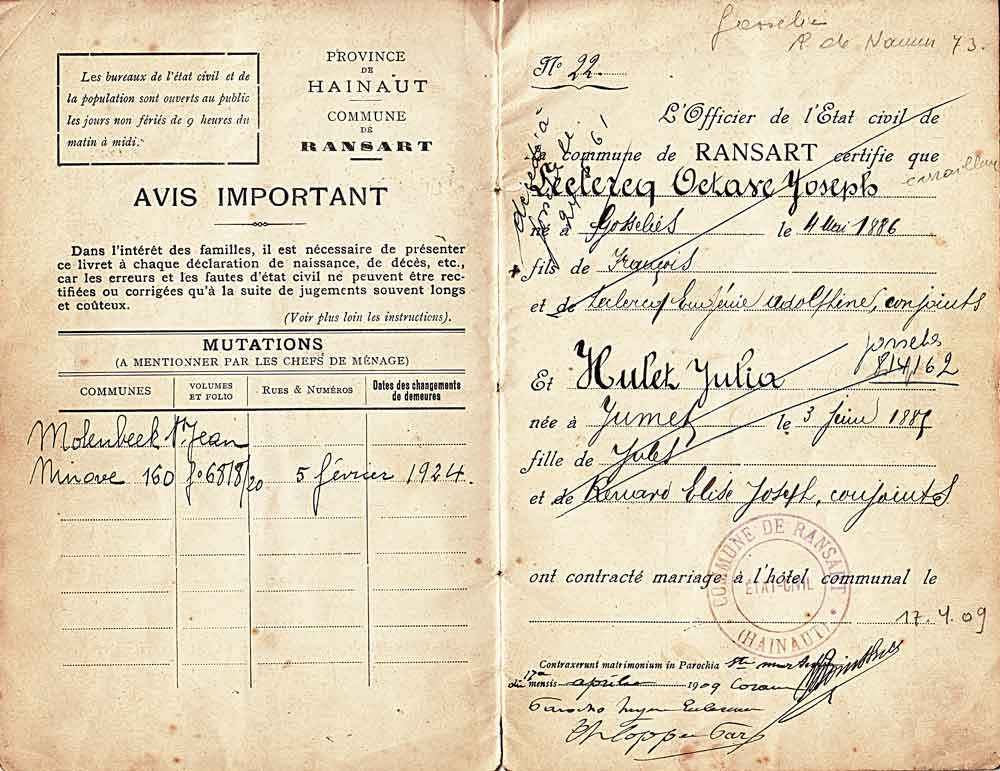 Les bureaux de l'état civil et de
la population sont ouverts au public
les jours non fériés de 9 heures du
matin à midi.
PROVINCE
DE
HAINAUT
COMMUNE
DE
RANSART
AVIS IMPORTANT
Dans l'intérêt des familles, il est nécessaire de présenter
ce livret à chaque déclaration de naissance, de décès, etc.,
car les erreurs et les fautes d'état civil ne peuvent être rec-
tifiées ou corrigées qu'à la suite de jugements souvent longs
et coûteux.
(Voir plus loin les instructions).
MUTATIONS
(A MENTIONNER PAR LES CHEFS DE MÉNAGE)
COMMUNES
VOLUMES
ET FOLIO
RUES & NUMÉROS
Dates des changements
de demeures
Molenbeek St Jean
Ninove 160 fo 6818/20 5 février 1924.
de Namur 73.
No 22
L'Officier de l'Etat civil de
la commune de RANSART certifie que
Leclercq Octave Joseph
né à Gosselies le 4 Mai 1886
fils de François
et de Leclercq Eugénie Adolphine, conjoints
8/4/62
Et Hulet Julia
née à Jumet le 3 Juin 1887
fille de Jules
et de Renard Elise Joseph, conjoints
COMMUNE DE RANSART
ÉTAT-CIVIL
(HAINAUT)
ont contracté mariage à l'hôtel communal le
17.4.09
Contraxerunt matrimonium in Parochia
die 17a mensis aprilis 1909 Coram